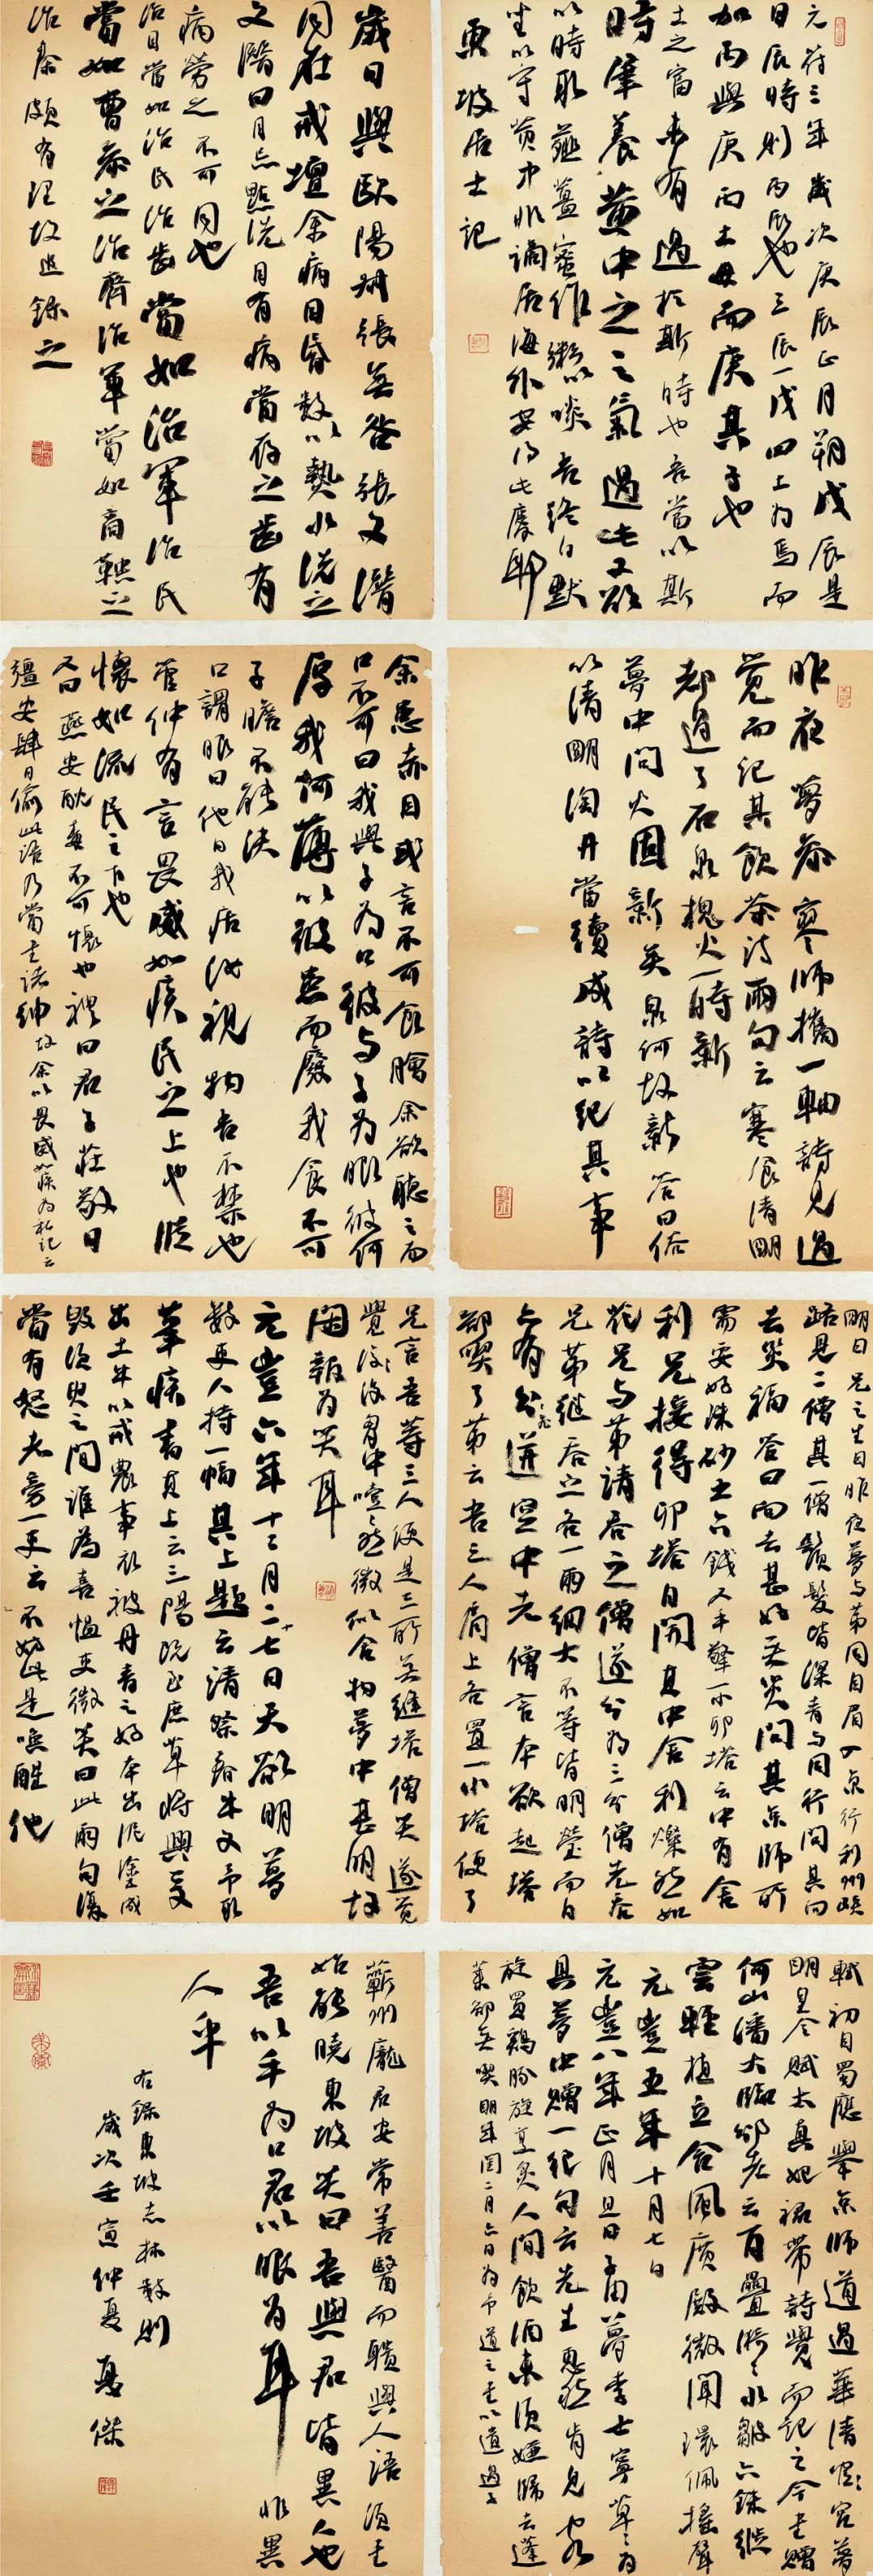 元符三年歲次庚辰正月朔戊辰是
日辰時則丙辰也三辰一戊四土為焉而
加丙與庚丙土母而庚其子也
土之富未有過於斯時也吾當以斯
時肇養黃中之氣過此又欲
以時取薤薑蜜作粥以啖吾終日默
坐以守黃中非謫居海外安得此慶耶
東坡居士記
歲日與歐陽叔弼晁無咎張文潛
同在戒壇余病目昏數以熱水洗之
文潛曰目忌點洗目有病當存之齒有
病勞之不可同也
治目當如治民治齒當如治軍治民
當如曹參之治齊治軍當如商鞅之
治秦頗有理故追錄之
昨夜夢參寥師攜一軸詩見過
覺而記其飲茶詩兩句云寒食清明
都過了石泉槐火一時新
夢中問火固新矣泉何故新答曰俗
以清明淘井當續成詩以紀其事
余患赤目或言不可食膾余欲聽之而
口不可曰我與子為口彼與子為眼彼何
厚我何薄以彼患而廢我食不可
子瞻不能決
口謂眼曰他日我痁汝視物吾不禁也
管仲有言畏威如疾民之上也從
懷如流民之下也
又曰燕安酖毒不可懷也禮曰君子莊敬日
彊安肆日偷此語乃當書諸紳故余以畏威如疾為私記云
明日兄之生日昨夜夢與弟同自眉入京行利州峽
路見二僧其一僧鬚髮皆深青與同行問其向
去災福答曰向去甚好無災問其京師所
需要好朱砂五六錢又手擎一小卯塔云中有舍
利兄接得卯塔自開其中舍利燦然如
花兄與弟請吞之僧遂分為三分僧先吞
兄弟繼吞之各一兩細大不等皆明瑩而白
亦有飛迸空中者僧言本欲起塔
卻喫了弟云吾三人肩上各置一小塔便了
兄言吾等三人便是三所無縫塔僧笑遂覺
覺後胸中噎噎然微似含物夢中甚明故
閑報為笑耳
元豐六年十二月二十七日天欲明夢
數吏人持一幅其上題云請祭春牛文予取
筆疾書其上云三陽既至庶草將興爰
出土牛以戒農事衣被丹青之好本出泥塗成
毀須臾之間誰為喜慍吏微笑曰此兩句復
當有怒者旁一吏云不妨此是喚醒他
軾初自蜀應舉京師道過華清宮夢
明皇令賦太真妃裙帶詩覺而記之今書贈
何山潘大臨邠老云百疊漪漪水皺六銖縰縰
雲輕植立含風廣殿微聞環佩搖聲
元豐五年十月七日
元豐八年正月旦日子由夢李士寧草草為
具夢中贈一絕句云先生惠然肯見客
旋買雞豚旋烹炙人間飲酒未須嫌歸去蓬
萊卻無喫明年閏二月六日為予道之書以遺過子
蘄州龐君安常善醫而聵與人語須書
始能曉東坡笑曰吾與君皆異人也
吾以手為口君以眼為耳非異
人乎
右錄東坡志林數則
歲次壬寅仲夏 傑